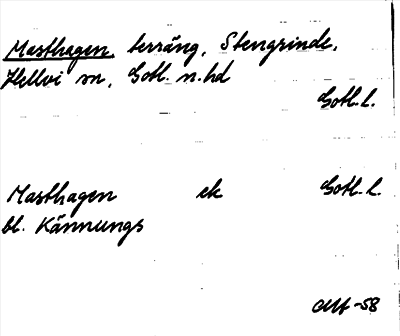 Masthagen terräng, Stengrinde,
Hellvi sn, Gotl. n. hd
Gotl. l.
Masthagen ek Gotl. l.
bl. Kännungs
-58